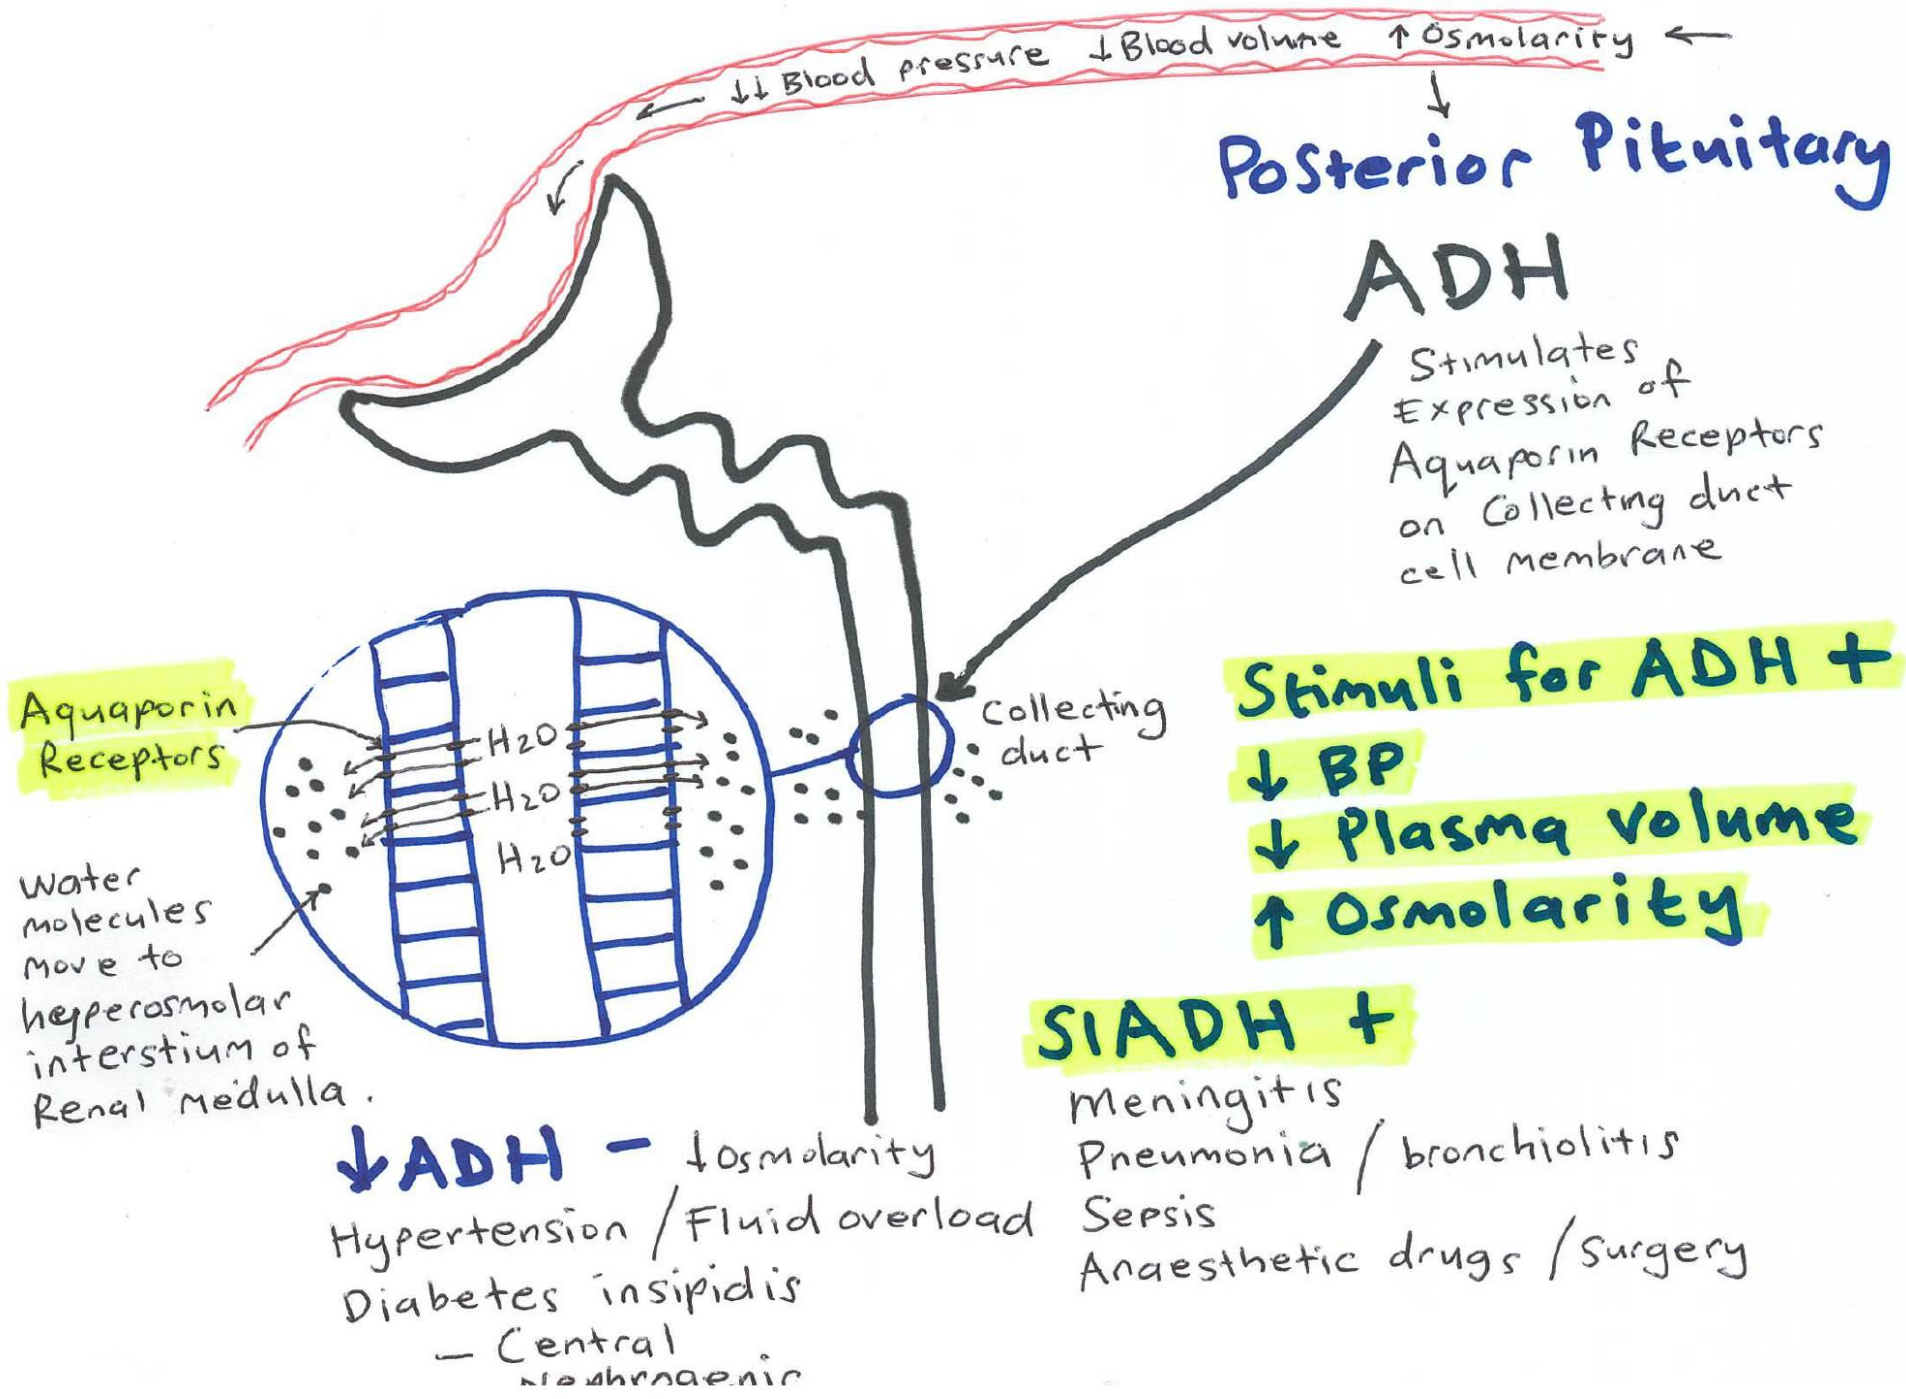 ↓↓ Blood pressure ↓ Blood volume ↑ Osmolarity ←
Posterior Pituitary
ADH
Stimulates
Expression of
Aquaporin Receptors
on Collecting duct
cell membrane
Aquaporin
Receptors
H2O
H2O
H2O
Collecting
duct
Water
molecules
move to
hyperosmolar
interstium of
Renal medulla.
Stimuli for ADH +
↓ BP
↓ Plasma volume
↑ Osmolarity
SIADH +
Meningitis
Pneumonia / bronchiolitis
Sepsis
Anaesthetic drugs / surgery
↓ADH - ↓osmolarity
Hypertension / Fluid overload
Diabetes insipidis
- Central
Nephrogenic